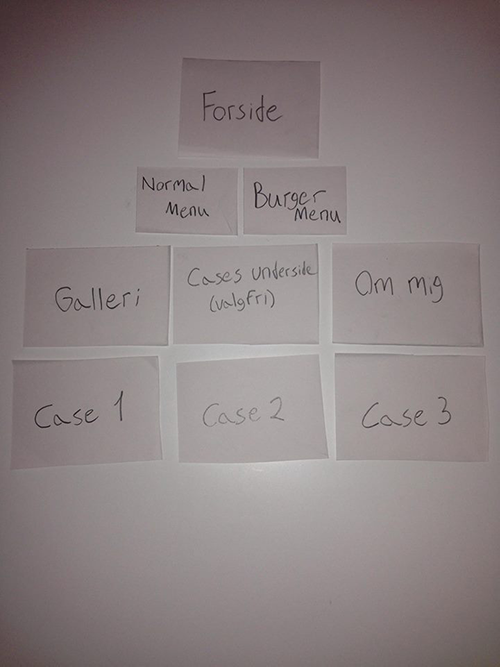 Forside
Normal
Menu
Burger
Menu
Galleri
Cases underside
(valgfri)
Om mig
Case 1
Case 2
Case 3